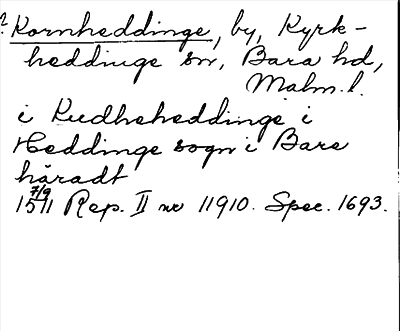 ? Kornheddinge, by, Kyrk-
heddinge sn, Bara hd,
Malm.l.
i Rudheheddinge i
Heddinge sogn i Bare
häradt
7/9
1511 Rep. II nr 11910. Spec. 1693.